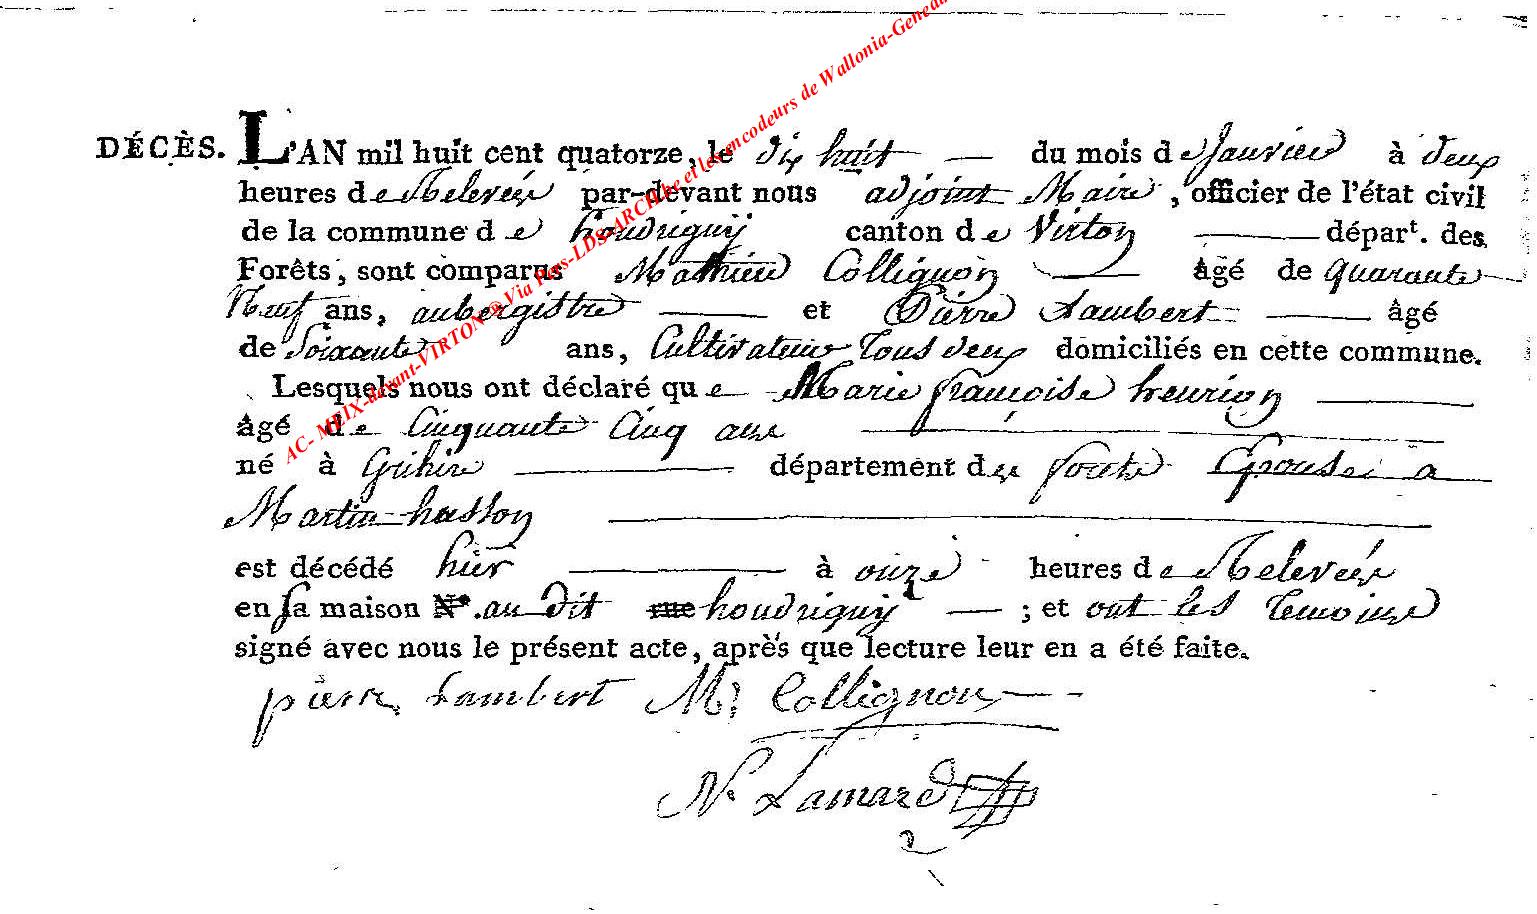 DÉCÈS. L'AN mil huit cent quatorze, le dix huit du mois de Janvier à deux
heures de Relevée par-devant nous adjoint Maire, officier de l'état civil
de la commune de houdriguy canton de Virton départ. des
Forêts, sont comparus Mathieu Collignon âgé de quarante
Neuf ans, aubergistre et Pierre Lambert âgé
de Soixante ans, Cultivateur Tous deux domiciliés en cette commune.
Lesquels nous ont déclaré que Marie françoise henrion
âgé de Cinquante Cinq ans
né à département des forets Epouse a
Martin husson
est décédé hier à onze heures de Relevée
en sa maison N°. au dit rue houdriguy ; et ont les Temoins
signé avec nous le présent acte, après que lecture leur en a été faite.
pierre Lambert M: Collignon
N. Lamard
AC- MEIX-devant-VIRTON @ Via Pars-LDS-ARCH.be et les encodeurs de Wallonia-Genea